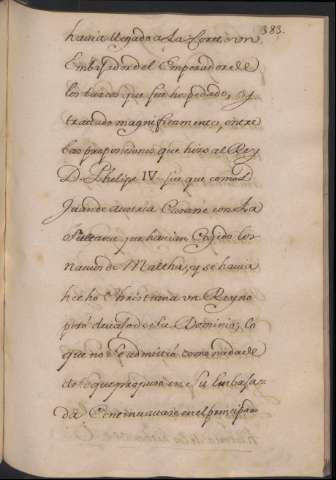 383.
havia llegado a la Corte, un
Embajador del Emperador de
los turcos que fue hospedado, y
tratado magnificamente, entre
las proposiciones que hizo al Rey
D. Phelipe IV. fue que con d.
Juan de Austria Casase con la
Sultana que havian Cogido los
navios de Maltha, y se havia
hecho Christiana un Reyno
de su Dominio, lo
que no se admitió como nada de
lo que propuso en su Embaja-
da Continuavase en el principa